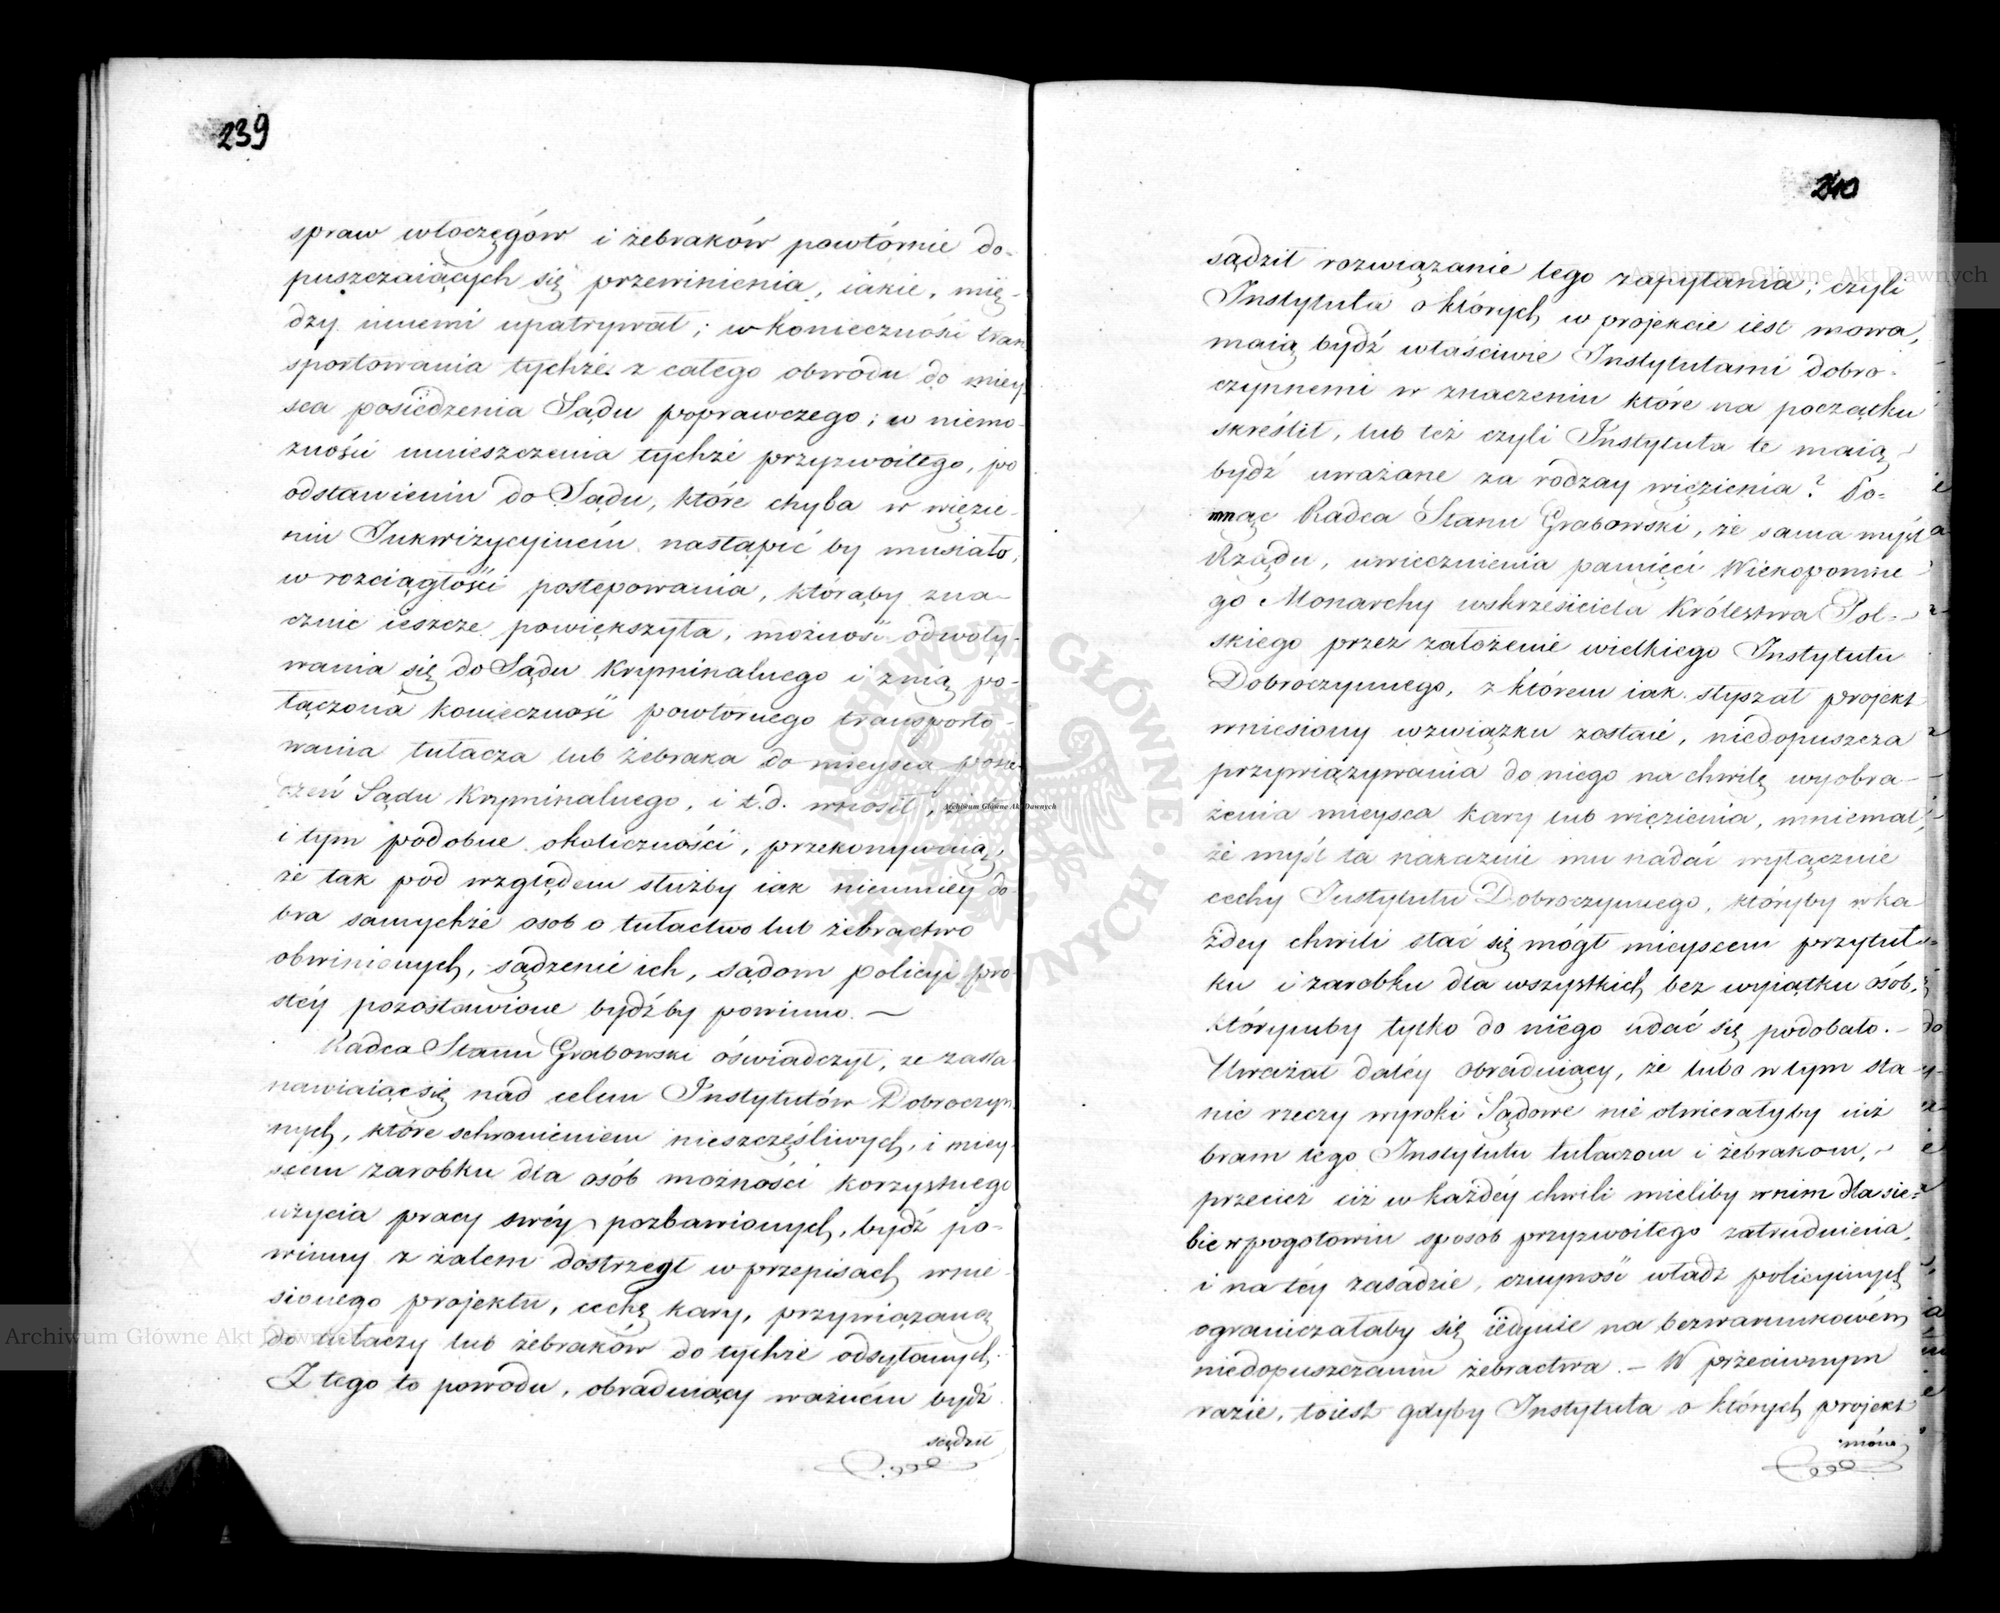 239
spraw włoczęgów i żebraków powtórnie do-
puszczaiących się przewinienia, iakie, mię-
dzy innemi upatrywał; w konieczności tran
sportowania tychże z całego obwodu do miey-
sca posiedzenia Sądu poprawczego; w niemo-
żności umieszczenia tychże przyzwoitego, po
odstawieniu do Sądu, które chyba w więzie-
niu Inkwizycyiném nastąpić by musiało,
w rozciągłości postępowania, któraby zna-
cznie ieszcze powiększyła, możność odwoły-
wania się do Sądu Kryminalnego i z nią po-
łączona konieczność powtórnego transporto-
wania tułacza lub żebraka do mieysca posie-
dzeń Sądu Kryminalnego, i t.d. wnosił, że te
i tym podobne okoliczności, przekonywaią,
że tak pod względem służby iak niemniey do-
bra samychże osob o tułactwo lub żebractwo
obwinionych, sądzenie ich, sądom policyi pro-
stéy pozostawione bydźby powinno. —
Radca Stanu Grabowski oświadczył, że zasta-
nawiaiąc się nad celem Instytutów Dobroczyn
nych, które schronieniem nieszczęśliwych, i miey-
scem zarobku dla osób możności korzystnego
użycia pracy swéy pozbawionych, bydź po-
winny z żalem dostrzegł w przepisach wnie-
sionego projektu, cechę kary, przywiązaną
do tułaczy lub żebraków do tychże odsyłanych.
Z tego to powodu, obraduiący ważném bydź
sądził
240
sądził rozwiązanie tego zapytania; czyli
Instytuta o których w projekcie iest mowa,
maią bydź właściwie Instytutami dobro-
czynnemi w znaczeniu które na początku
skreślił, lub też czyli Instytuta te maią
bydź uważane za rodzay więzienia? Po-
mnąc Radca Stanu Grabowski, że sama myśl
Rządu, uwiecznienia pamięci Wiekopomne-
go Monarchy wskrzesiciela Królestwa Pol-
skiego przez założenie wielkiego Instytutu
Dobroczynnego, z którem iak słyszał projekt
wniesiony w związku zostaie, niedopuszcza
przywiązywania do niego na chwilę wyobra-
żenia mieysca kary lub więzienia, mniemał,
że myśl ta nakazuie mu nadać wyłącznie
cechy Instytutu Dobroczynnego, któryby w ka
żdey chwili stać się mógł mieyscem przytuł-
ku i zarobku dla wszystkich bez wyiątku osób,
którymby tylko do niego udać się podobało. —
Uważał daléy obraduiący, że lubo w tym sta-
nie rzeczy wyroki Sądowe nie otwierałyby iuż
bram tego Instytutu tułaczom i żebrakom,
przecież iż w każdéy chwili mieliby w nim dla sie-
bie w pogotowiu sposob przyzwoitego zatrudnienia,
i na téy zasadzie, czynność władz policyinych
ograniczałaby się iedynie na bezwarunkowém
niedopuszczaniu żebractwa. — W przeciwnym
razie, toiest gdyby Instytuta o których projekt
mówi
Archiwum Główne Akt Dawnych